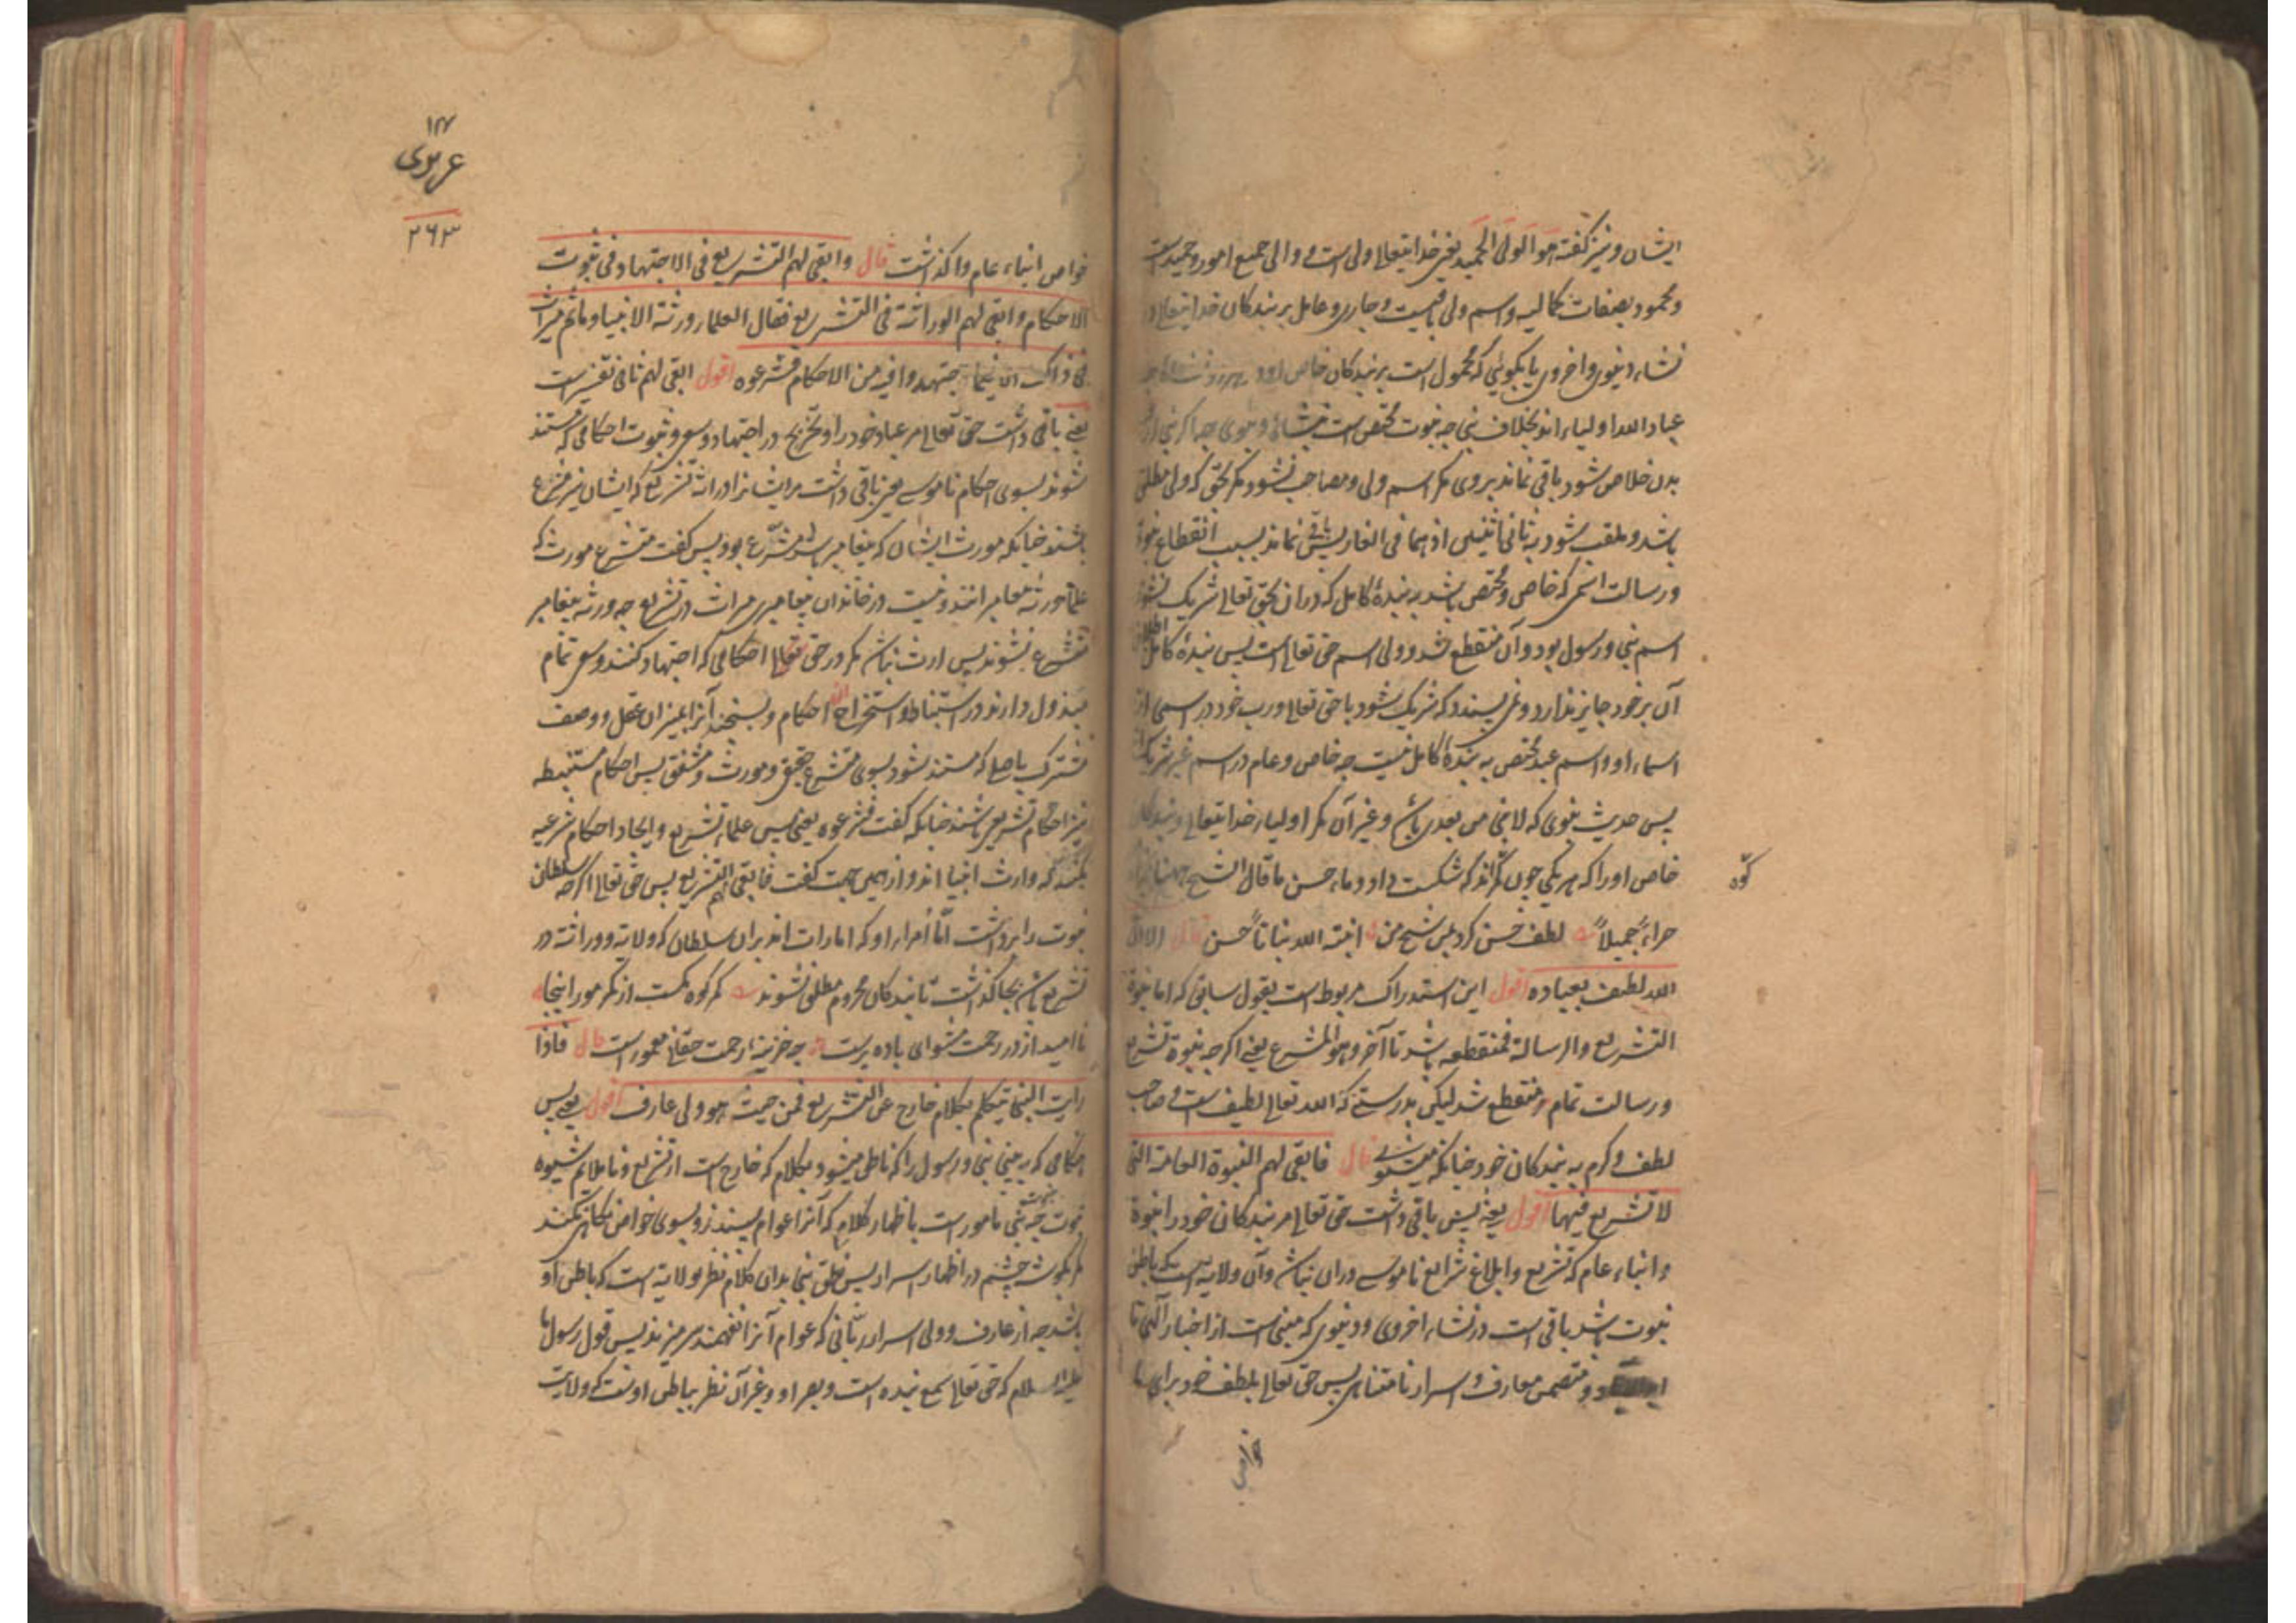 ایشان و نیز گفته هو الولی الحمید یعنی خدایتعالی ولی است و والی جمیع امور و حمید است
و محمود بصفات کمالیه و اسم ولی باقیست و جاری و عامل بر بندکان خدایتعالی در
نشاء دنیوی و اخروی یا بکوئی که محمول است بر بندکان خاص
عباد الله اولیاء اند بخلاف نبی چه نبوت مختص است بنشاء دنیوی چه اکر نبی از
بدن خلاص شود باقی نماند بر وی مکر اسم ولی و مصاحب نشود مکر بحق که ولی مطلق
باشد و ملقب شود به ثانی اثنین اذ هما فی الغار پس باقی نماند بسبب انقطاع نبوة
و رسالت اسمی که خاص و مختص باشد به بندهٔ کامل که دران بحق تعالی شریک نشود
اسم نبی و رسول بود و آن منقطع شد و ولی اسم حق تعالی است پس بندهٔ کامل اطلاق
آن بر خود جایز ندارد و نمی پسندد که شریک شود با حق تعالی و رب خود در اسمی از
اسماء او و اسم عبد مختص به بندهٔ کامل نیست چه خاص و عام در اسم غیر شریک اند
پس حدیث نبوی که لا نبی من بعدی باشد و غیر آن مکر اولیاء خدایتعالی و بندکان
خاص او را که هر یکی چون کر اند که شکست داد و ماء حسن ما قال الشیخ
کوه
جزاءً جمیلاً لطف حسن کرد بس شیخ من انبته الله نباتاً حسن قال الا ان
الله لطیف بعباده اقول این استدراک مربوط است بقول سابق که اما نبوة
التشریع و الرسالة فمنقطعه باشد تا آخر و هو المشرع یعنی اکرچه نبوة تشریع
و رسالت تمام و منقطع شد لیکن بدرستی که الله تعالی لطیف است و صاحب
لطف و کرم به بندکان خود چنانکه قال فابقی لهم النبوة العامة التی
لا تشریع فیها اقول یعنی پس باقی داشت حق تعالی مر بندکان خود را نبوة
و انباء عام که تشریع و ابلاغ شرایع ناموسی دران نباشد و آن ولایة است که باطن
نبوت باشد باقی است در نشاء اخروی و دنیوی که مبنی است از اخبار الهی تا
و متضمن معارف و اسرار نامتناهی پس حق تعالی بلطف خود برای ما
خواص
عربی
۲۶۳
خواص انباء عام وا کذاشت قال وابقی لهم التشریع فی الاجتهاد فی ثبوت
الاحکام وابقی لهم الوراثة فی التشریع فقال العلماء ورثة الانبیاء وما ثم میراث
فی ذاک الا فیما اجتهدوا فیه من الاحکام فشرعوه اقول ابقی لهم ثانی تفسیر است
یعنی باقی داشت حق تعالی مر عباد خود را و تخریج در اجتهاد و سعی و ثبوت احکامی که مستند
شوند بسوی احکام ناموسی یعنی باقی داشت مر ایشانرا وراثة تشریع که ایشان نیز مشرع
باشند چنانکه مورث ایشان که پیغامبر باشد مشرع بود پس کفت مشرع مورث که
علما ورثه پیغامبر انند و نیست در خاندان پیغامبری میراث در تشریع چه ورثه پیغامبر
مشرع نشوند پس ارث نباشد مکر در حق تعالی احکامی که اجتهاد کنند و سعی تمام
مبذول دارند در استنباط و استخراج احکام و بسنجند آنرا بمیزان عقل و وصف
مشترک باصل که مستند شود بسوی مشرع حقیقی و مورث و مشفق پس احکام مستنبطه
نیز احکام تشریعی باشند چنانکه کفت فشرعوه یعنی پس علماء تشریع و ایجاد احکام شرعیه
بکنند که وارث انبیا اند و از همین جهت کفت فابقی لهم التشریع پس حق تعالی اکرچه سلطان
نبوت را برداشت امّا اُمراء او که امارات اند بران سلطان که ولایة و وراثة در
تشریع باشد بجا کذاشت تا بندکان محروم مطلق نشوند
نا امید از در رحمت مشو ای باده پرست چه خزینهٔ رحمت حقتعالی معمور است قال فاذا
رایت النبی یتکلم بکلام خارج عن التشریع فمن حیث هو ولی عارف اقول یعنی پس
هنکامی که به بینی نبی و رسول را که ناطق میشود بکلام که خارج است از تشریع و ناملائم شیوه
نبوت چه نبی مامور است باظهار کلام که آنرا عوام پسندند و بسوی خواص نکاه نکنند
مکر بکوشه چشم در اظهار اسرار پس نطق نبی بدان کلام نظر بولایة است که باطن او
باشد چه از عارف و ولی اسرار ربّانی که عوام آنرا نفهمند سر میزند پس قول رسول ما
علیه السلام که حق تعالی سمع بنده است و بصر او و غیر آن نظر بباطن اوست که ولایت